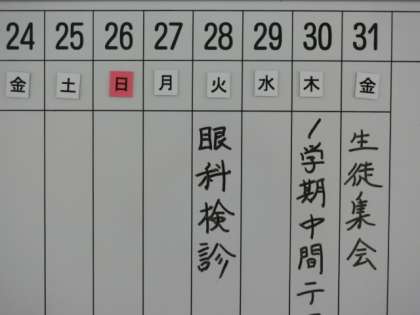 24 25 26 27 28 29 30 31
金 土 日 月 火 水 木 金
眼科検診
1学期中間テ
生徒集会